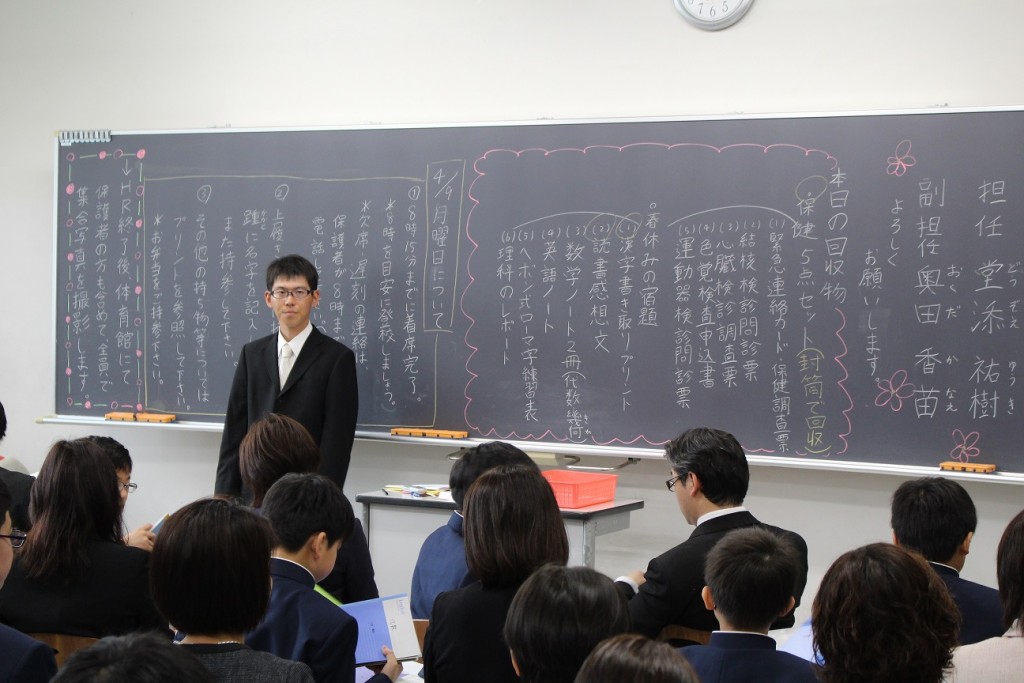 担任 堂添 祐樹
どうぞえ ゆうき
副担任 奥田 香苗
おくだ かなえ
よろしく
お願いします。
本日の回収物
保健5点セット(封筒で回収)
(1)緊急連絡カード・保健調査票
(2)結核検診問診票
(3)心臓検診調査票
(4)色覚検査申込書
(5)運動器検診問診票
春休みの宿題
(1)漢字書き取りプリント
(2)読書感想文
(3)数学ノート2冊(代数・幾何)
(4)英語ノート
(5)ヘボン式ローマ字練習表
(6)理科のレポート
4/9月曜日について
①8時15分までに着席完了。
※8時を目安に登校しましょう。
※欠席、遅刻の連絡は、
保護者が8時ま
電話
②上履
踵に名字を記入
また持参して下さい。
③その他の持ち物等については
プリントを参照して下さい。
※お弁当をご持参下さい。
→HR終了後、体育館にて
保護者の方も含めて、全員で
集合写真を撮影します。
7 6 5